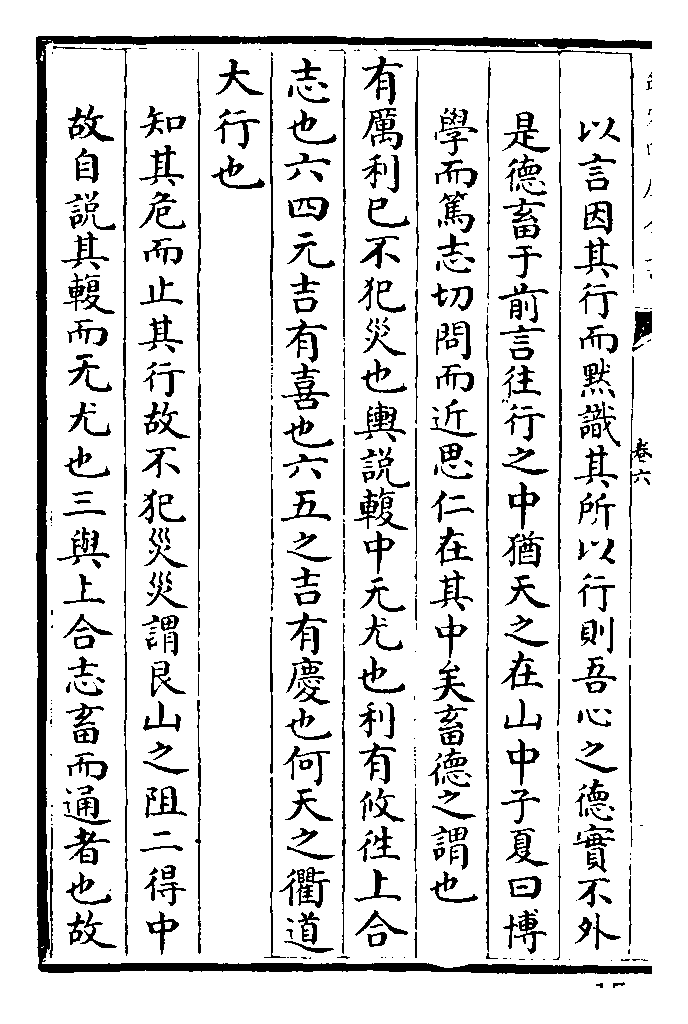 卷六
以言因其行而默識其所以行則吾心之德實不外
是德畜于前言往行之中猶天之在山中子夏曰博
學而篤志切問而近思仁在其中矣畜德之謂也
有厲利已不犯災也輿說輹中无尤也利有攸徃上合
志也六四元吉有喜也六五之吉有慶也何天之衢道
大行也
知其危而止其行故不犯災災謂艮山之阻二得中
故自説其輹而无尤也三與上合志畜而通者也故